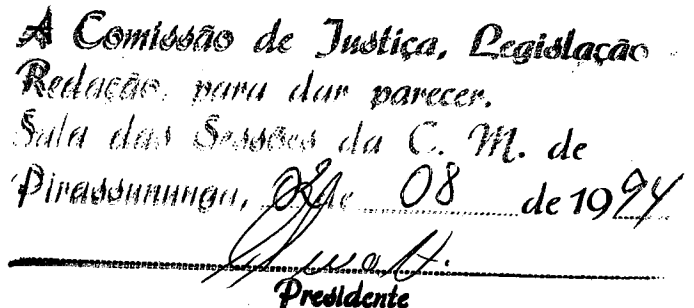 A Comissão de Justiça, Legislação
Redação, para dar parecer.
Sala das Sessões da C. M. de
Pirassununga, de 08 de 1994
Presidente